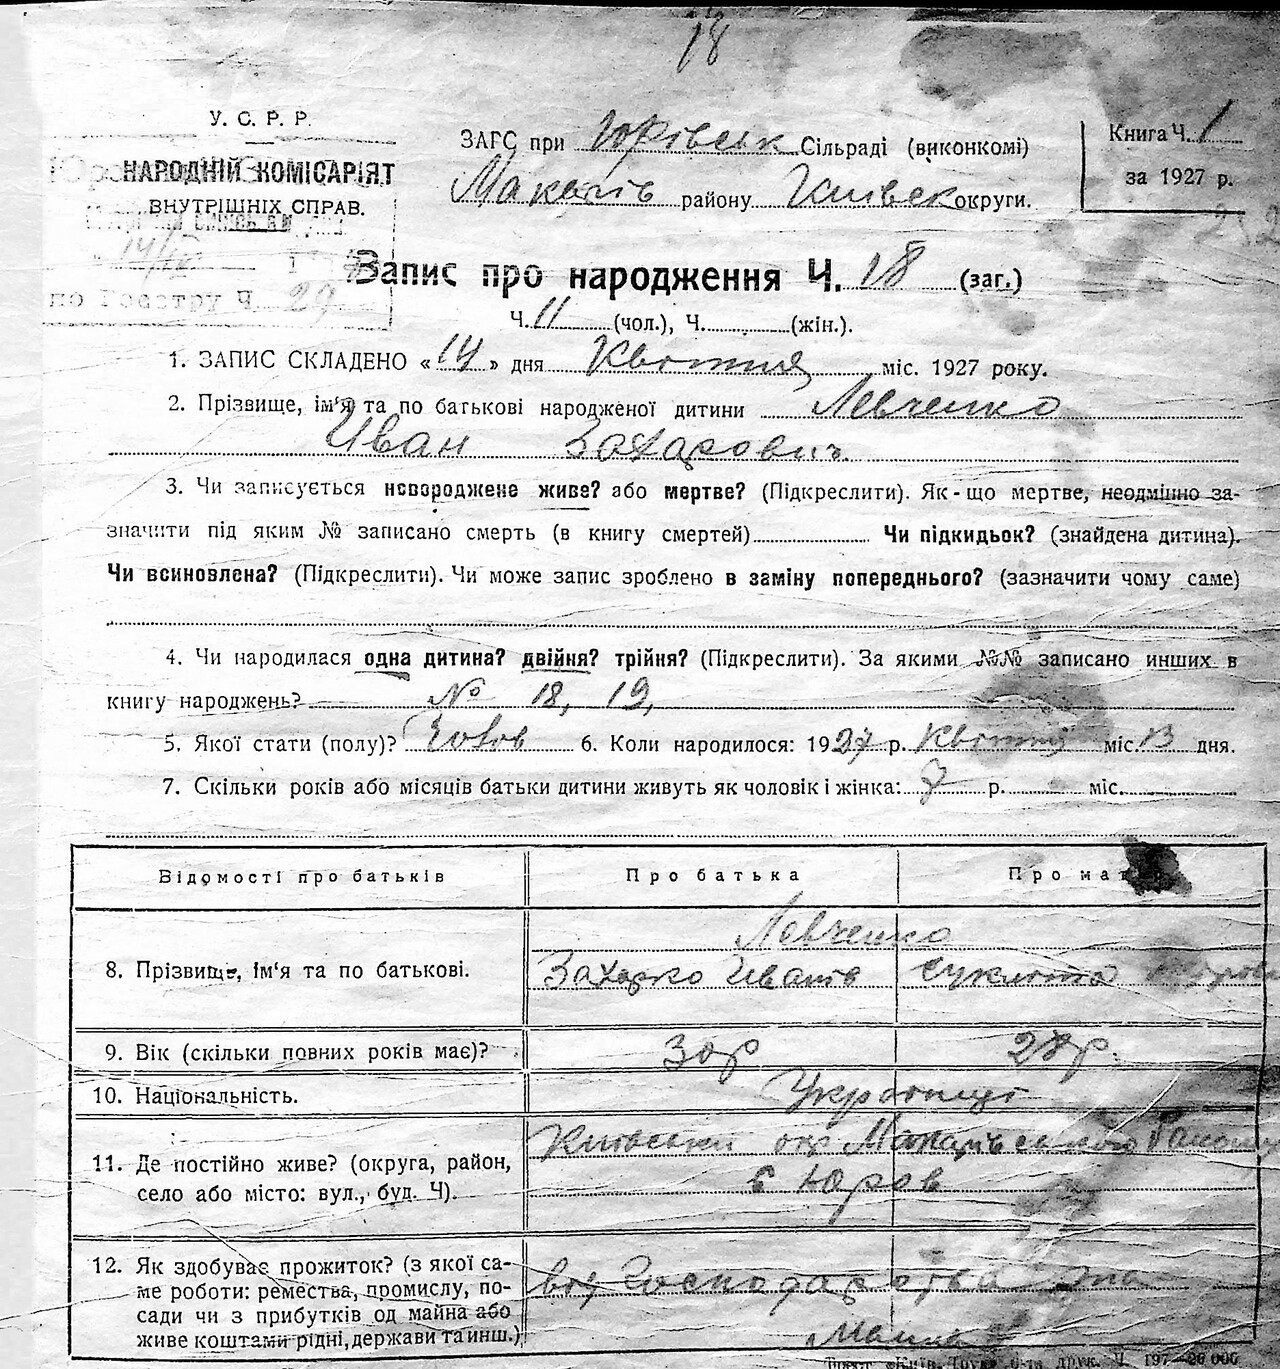 18
У. С. Р. Р.
НАРОДНІЙ КОМІСАРІЯТ
ВНУТРІШНІХ СПРАВ.
14/IV
по Реєстру Ч. 29
ЗАГС при Юрівськ Сільраді (виконкомі)
Макарів району Київськ округи.
Книга Ч. 1
за 1927 р.
Запис про народження Ч. 18 (заг.)
Ч. 11 (чол.), Ч. (жін.).
1. ЗАПИС СКЛАДЕНО «14» дня Квітня міс. 1927 року.
2. Прізвище, ім'я та по батькові народженої дитини Левченко
Иван Захарович
3. Чи записується новороджене живе? або мертве? (Підкреслити). Як-що мертве, неодмінно за-
значити під яким № записано смерть (в книгу смертей) Чи підкидьок? (знайдена дитина).
Чи всиновлена? (Підкреслити). Чи може запис зроблено в заміну попереднього? (зазначити чому саме)
4. Чи народилася одна дитина? двійня? трійня? (Підкреслити). За якими №№ записано инших в
книгу народжень? № 18, 19,
5. Якої стати (полу)? Чолов 6. Коли народилося: 1927 р. Квітня міс. 13 дня.
7. Скільки років або місяців батьки дитини живуть як чоловік і жінка: 7 р. міс.
Відомості про батьків Про батька Про мат
8. Прізвище, ім'я та по батькові. Левченко
Захарко Иванів
9. Вік (скільки повних років має)? 30р 28р.
10. Національність. Українці
11. Де постійно живе? (округа, район, село або місто: вул., буд. Ч). Київський окр Макарівського Району
с Юров
12. Як здобуває прожиток? (з якої са-
ме роботи: ремества, промислу, по-
сади чи з прибутків од майна або
живе коштами рідні, держави та инш.)
від Господарства